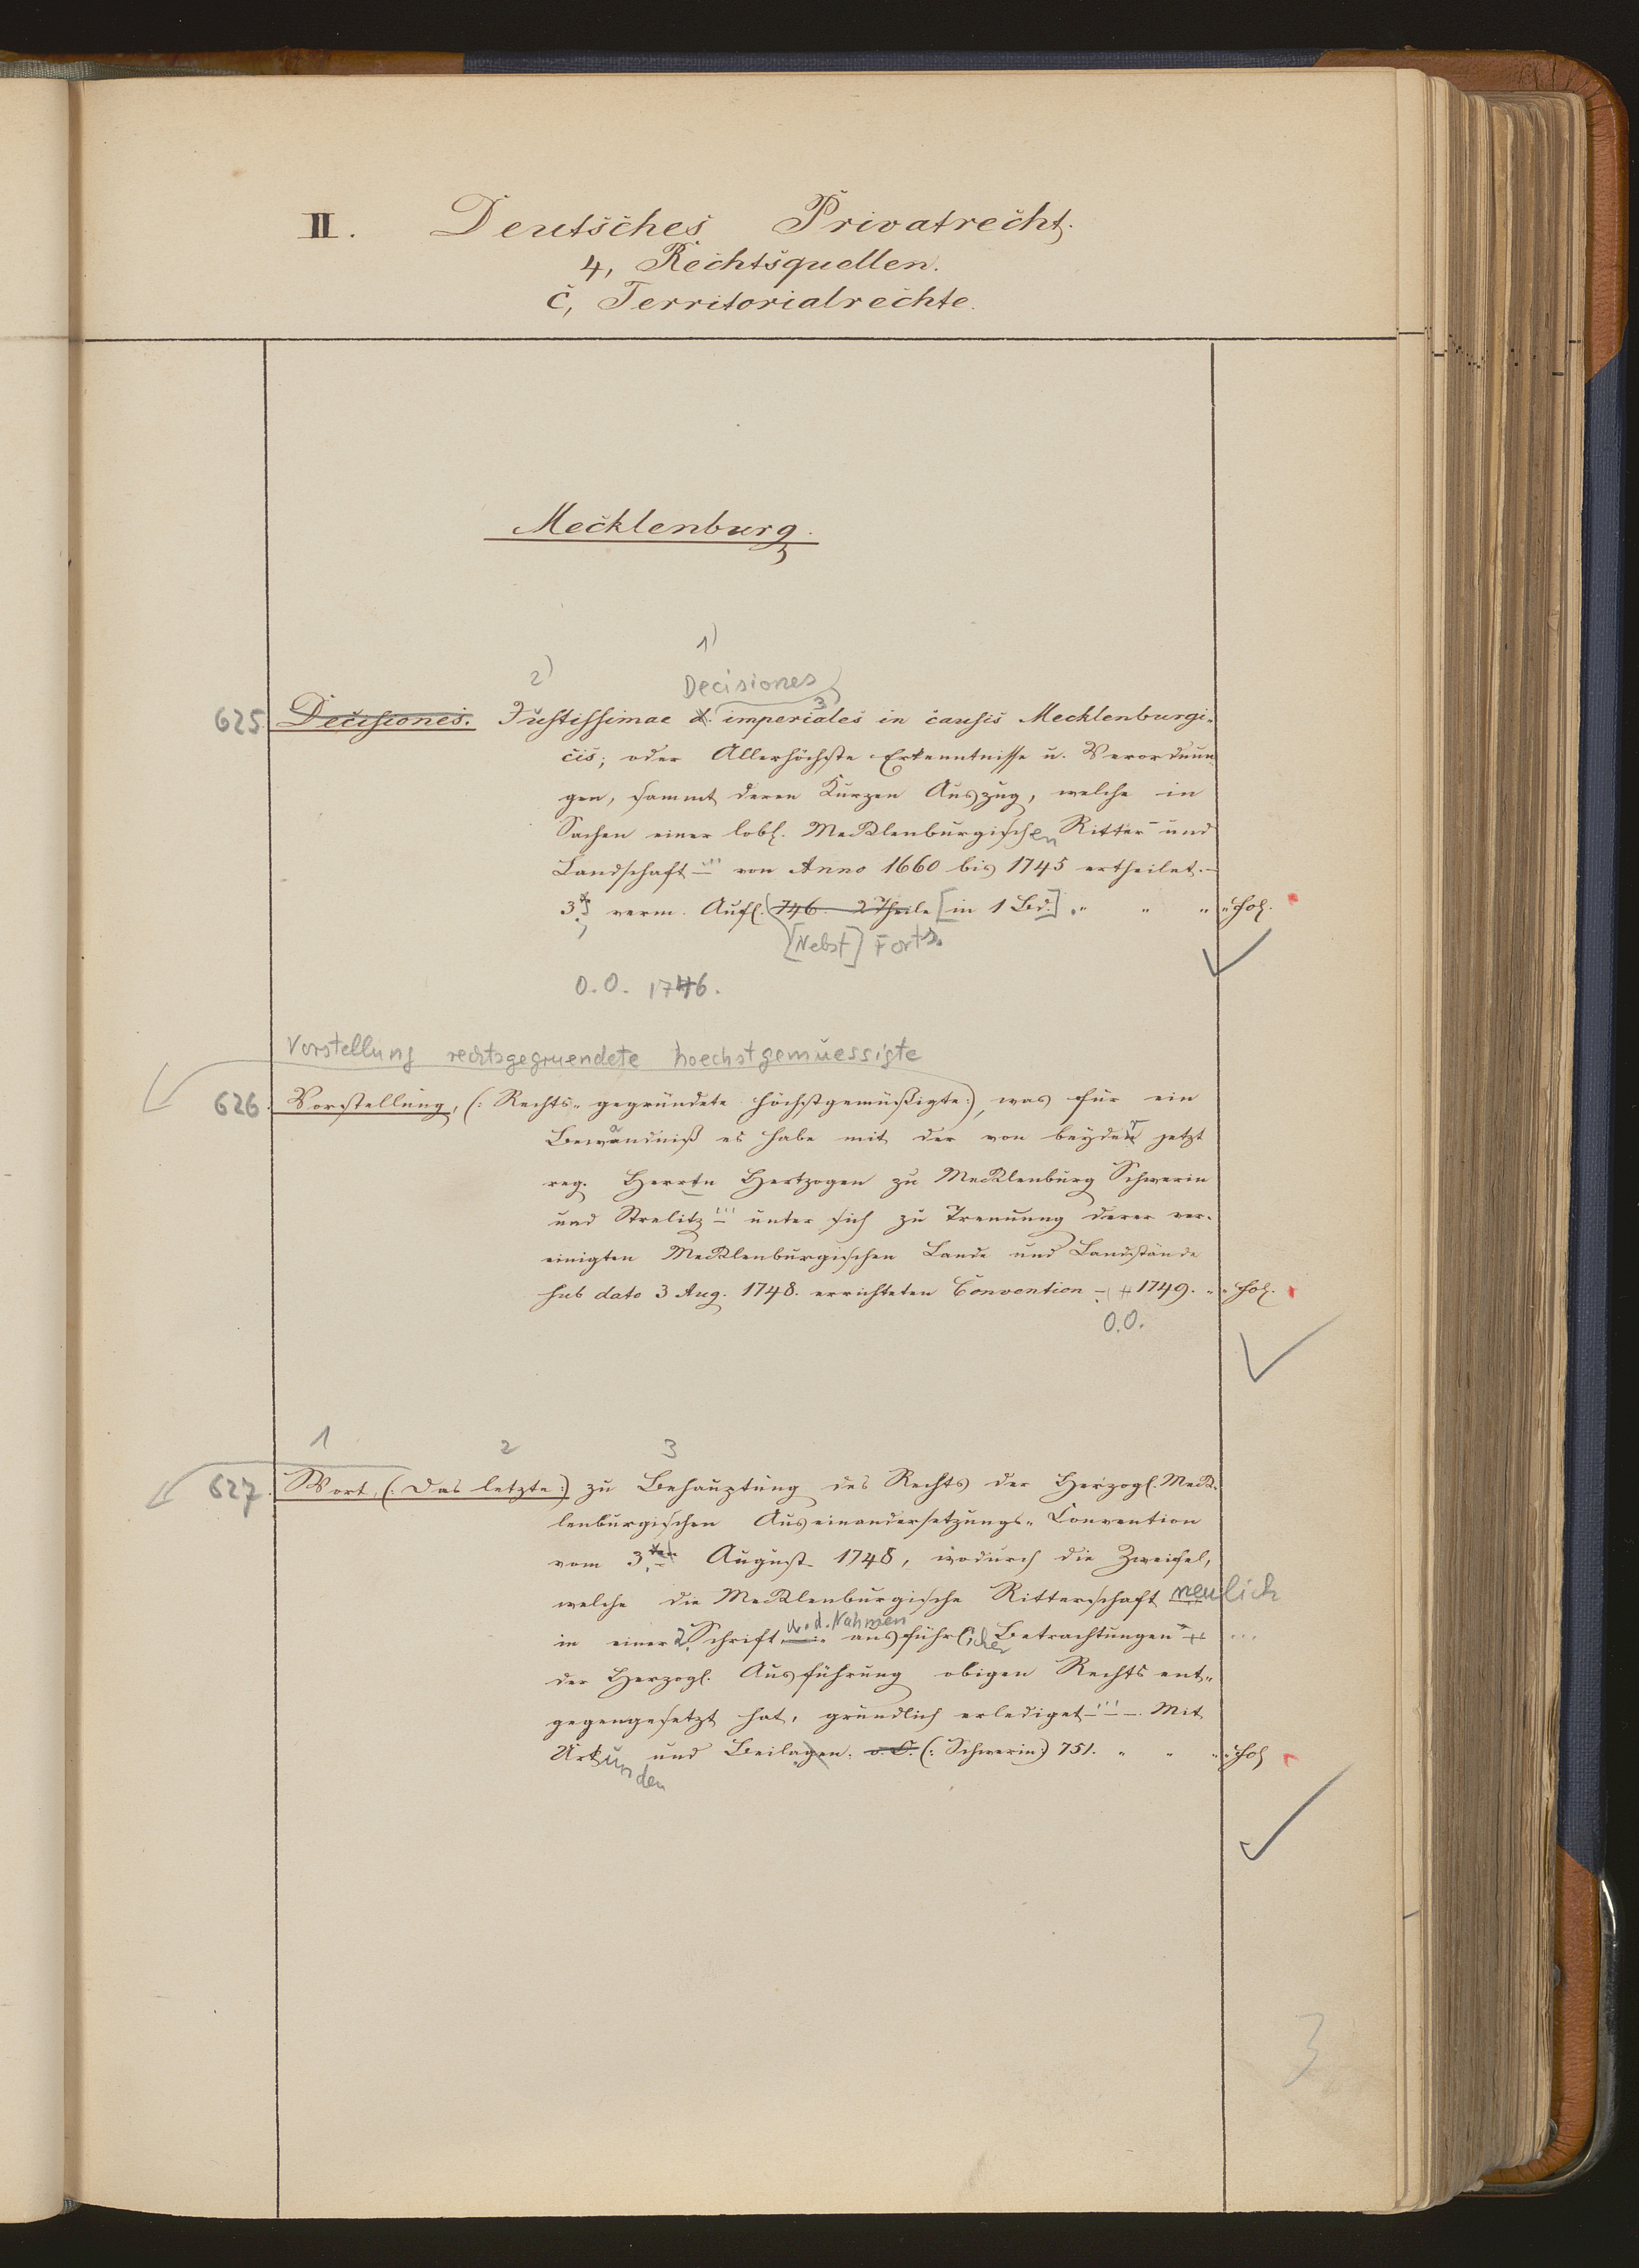 II. Deutsches Privatrecht.
4, Rechtsquellen.
c, Territorialrechte.
Mecklenburg.
1)
2) Decisiones
3
625. Decisiones. Justissimae d. imperiales in causis Mecklenburgi-
cis; oder Allerhöchste Erkenntnisse u. Verordnun-
gen, sammt deren Kurzen Auszug, welche in
Sachen einer lobl. Mecklenburgischen Ritter- und
Landschaft — ''' von Anno 1660 bis 1745 ertheilet. —
3. verm. Aufl. (746. 2 Theile [in 1 Bd.] „ „ „ Fol.
[Nebst] Forts.
O.O. 1746.
Vorstellung rechtsgegruendete hoechstgemuessigte
626. Vorstellung, (: Rechts- gegründete höchstgemüßigte:), was für ein
Bewandniß es habe mit der von beyden jetzt
reg. Herrn Hertzogen zu Mecklenburg Schwerin
und Strelitz — ''' unter sich zu Trennung derer ver-
einigten Mecklenburgischen Lande und Landstände
sub dato 3 Aug. 1748. errichteten Convention — + 1749. „ „ Fol.
O.O.
1 2 3
627. Wort, (: Das letzte:) zu Behauptung des Rechts der Herzogl. Meck-
lenburgischen Auseinandersetzungs- Convention
vom 3ten August 1748, wodurch die Zweifel,
welche die Mecklenburgische Ritterschaft neulich
u. d. Nahmen
in einer Schrift ausführlicher Betrachtungen + ...
der Herzogl. Ausführung obigen Rechts ent-
gegengesetzt hat, gründlich erlediget — ''' —. Mit
Urkunden und Beilagen. o. O. (: Schwerin:) 751. „ „ „ Fol
3